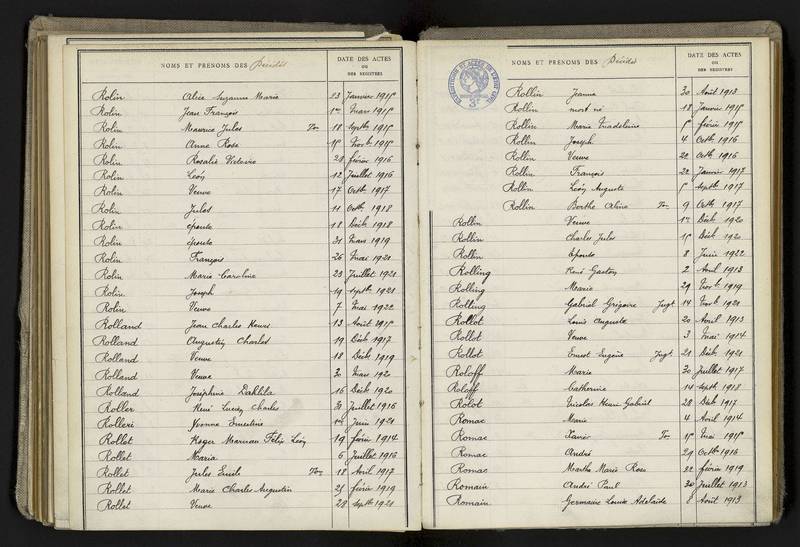 NOMS ET PRENOMS DES Décédés
DATE DES ACTES
OU
DES REGISTRES
Rolin Alice Suzanne Marie 23 Janvier 1915
Rolin Jean François 1er Mars 1915
Rolin Maurice Jules Ton 18 Septbe 1915
Rolin Anne Rose 15 Novbe 1915
Rolin Rosalie Victoire 29 février 1916
Rolin Léon 12 Juillet 1916
Rolin Veuve 17 Octbe 1917
Rolin Jules 11 Octbe 1918
Rolin épouse 18 Décbe 1918
Rolin épouse 31 Mars 1919
Rolin François 26 Mai 1921
Rolin Marie Caroline 23 Juillet 1921
Rolin Joseph 19 Septbe 1921
Rolin Veuve 7 Mai 1922
Rolland Jean Charles Henri 13 Août 1915
Rolland Augustin Charles 19 Décbe 1917
Rolland Veuve 18 Décbe 1919
Rolland Veuve 30 Mars 1920
Rolland Joséphine 16 Décbe 1920
Roller René Charles 31 Juillet 1916
Rolleri Yvonne Ernestine 1er Juin 1921
Rollet Roger Félix Léon 19 févier 1914
Rollet Maria 6 Juillet 1916
Rollet Jules Emile Ton 18 Avril 1917
Rollet Marie Charles Augustin 25 février 1919
Rollet Veuve 28 Septbe 1921
NOMS ET PRENOMS DES Décédés
DATE DES ACTES
OU
DES REGISTRES
Rollin Jeanne 30 Août 1913
Rollin mort né 18 Janvier 1915
Rollin Marie Madeleine 5 février 1915
Rollin Joseph 4 Octbe 1916
Rollin Veuve 22 Octbe 1916
Rollin François 22 Janvier 1917
Rollin Léon Auguste 5 Septbe 1917
Rollin Berthe Aline Ton 9 Octbe 1917
Rollin Veuve 1er Décbe 1920
Rollin Charles Jules 15 Décbe 1920
Rollin Epouse 8 Juin 1922
Rolling René Gaston 2 Avril 1913
Rolling Marie 29 Novbe 1919
Rolling Gabriel Grégoire Jugt 14 Novbe 1921
Rollot Louis Auguste 20 Avril 1913
Rollot Veuve 3 Mai 1914
Rollot Ernest Eugène Jugt 21 Décbe 1921
Roloff Marie 30 Juillet 1917
Roloff Catherine 14 Septbe 1918
Rolot Nicolas Henri Gabriel 28 Décbe 1917
Romac Marie 4 Avril 1914
Romac Xavier Ton 15 Mai 1915
Romac André 29 Octbe 1916
Romac Marthe Marie Rose 22 février 1919
Romain André Paul 30 Juillet 1913
Romain Germaine Louise Adelaïde 8 Août 1913